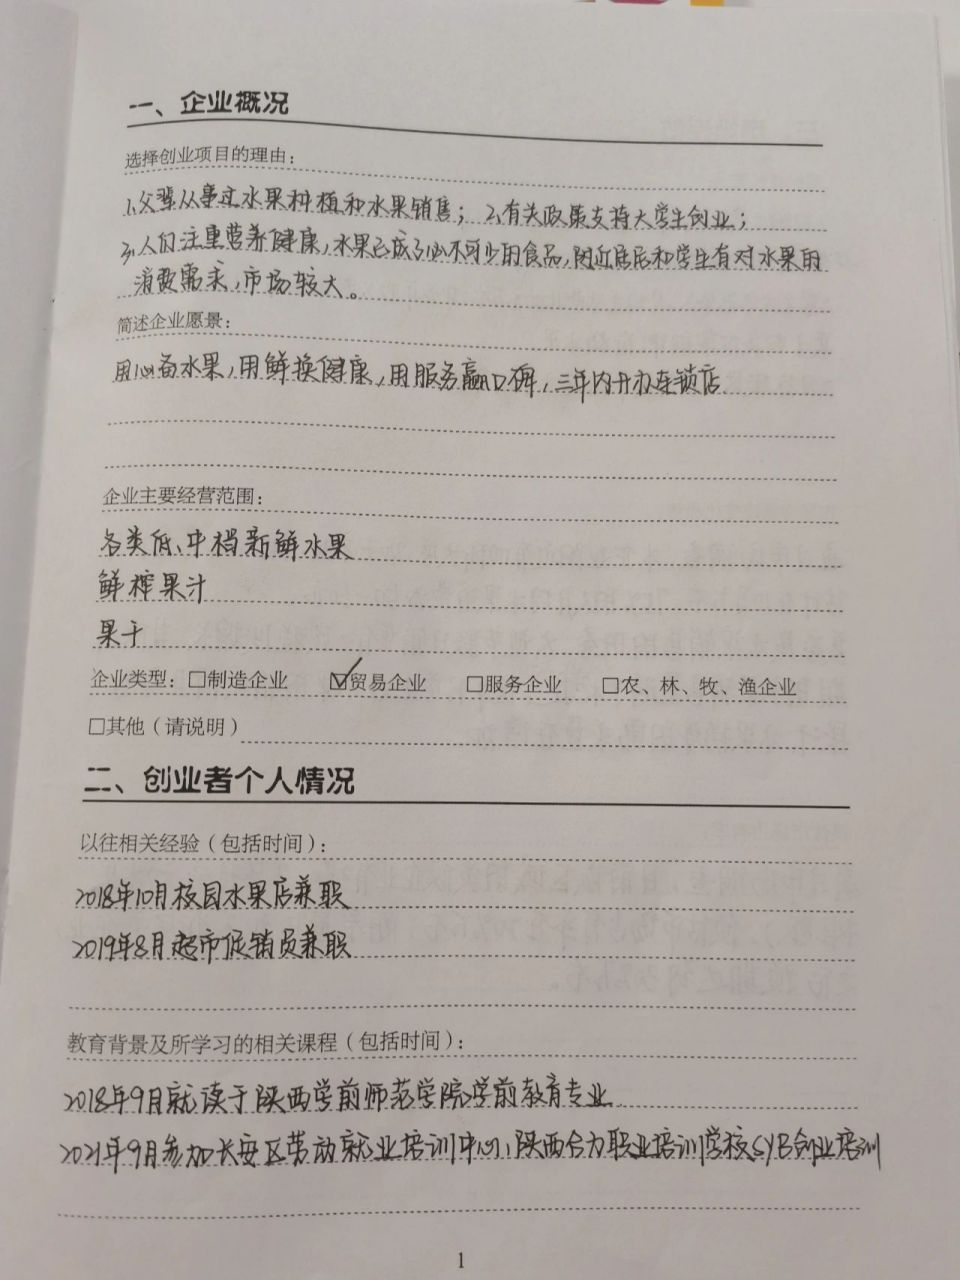 一、企业概况
选择创业项目的理由：
1、父辈从事过水果种植和水果销售；2、有关政策支持大学生创业；
3、人们注重营养健康，水果已成了必不可少的食品，附近居民和学生有对水果的
消费需求，市场较大。
简述企业愿景：
用心备水果，用鲜换健康，用服务赢口碑，三年内开办连锁店.
企业主要经营范围：
各类低、中档新鲜水果
鲜榨果汁
果干
企业类型：□制造企业 ☑贸易企业 □服务企业 □农、林、牧、渔企业
□其他（请说明）
二、创业者个人情况
以往相关经验（包括时间）：
2018年10月校园水果店兼职
2019年8月超市促销员兼职
教育背景及所学习的相关课程（包括时间）：
2018年9月就读于陕西学前师范学院学前教育专业
2021年9月参加长安区劳动就业培训中心，陕西合力职业培训学校SYB创业培训
1